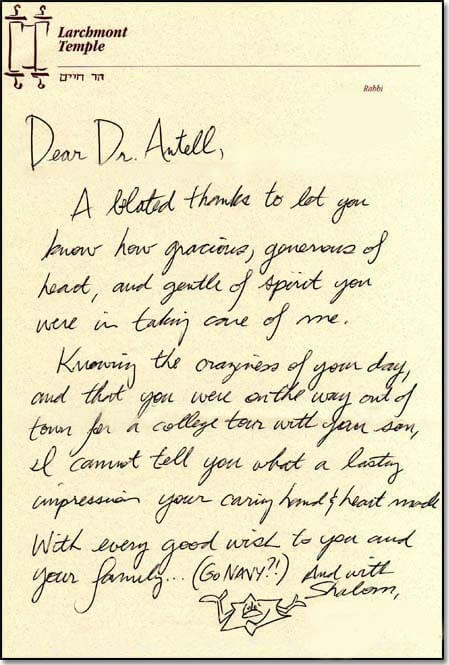 Larchmont
Temple
הר חיים
Rabbi
Dear Dr. Antell,
A belated thanks to let you
know how gracious, generous of
heart, and gentle of spirit you
were in taking care of me.
Knowing the craziness of your day,
and that you were on the way out of
town for a college tour with your son,
I cannot tell you what a lasting
impression your caring hand & heart made
With every good wish to you and
your family... (GO NAVY?!) And with
Shalom,